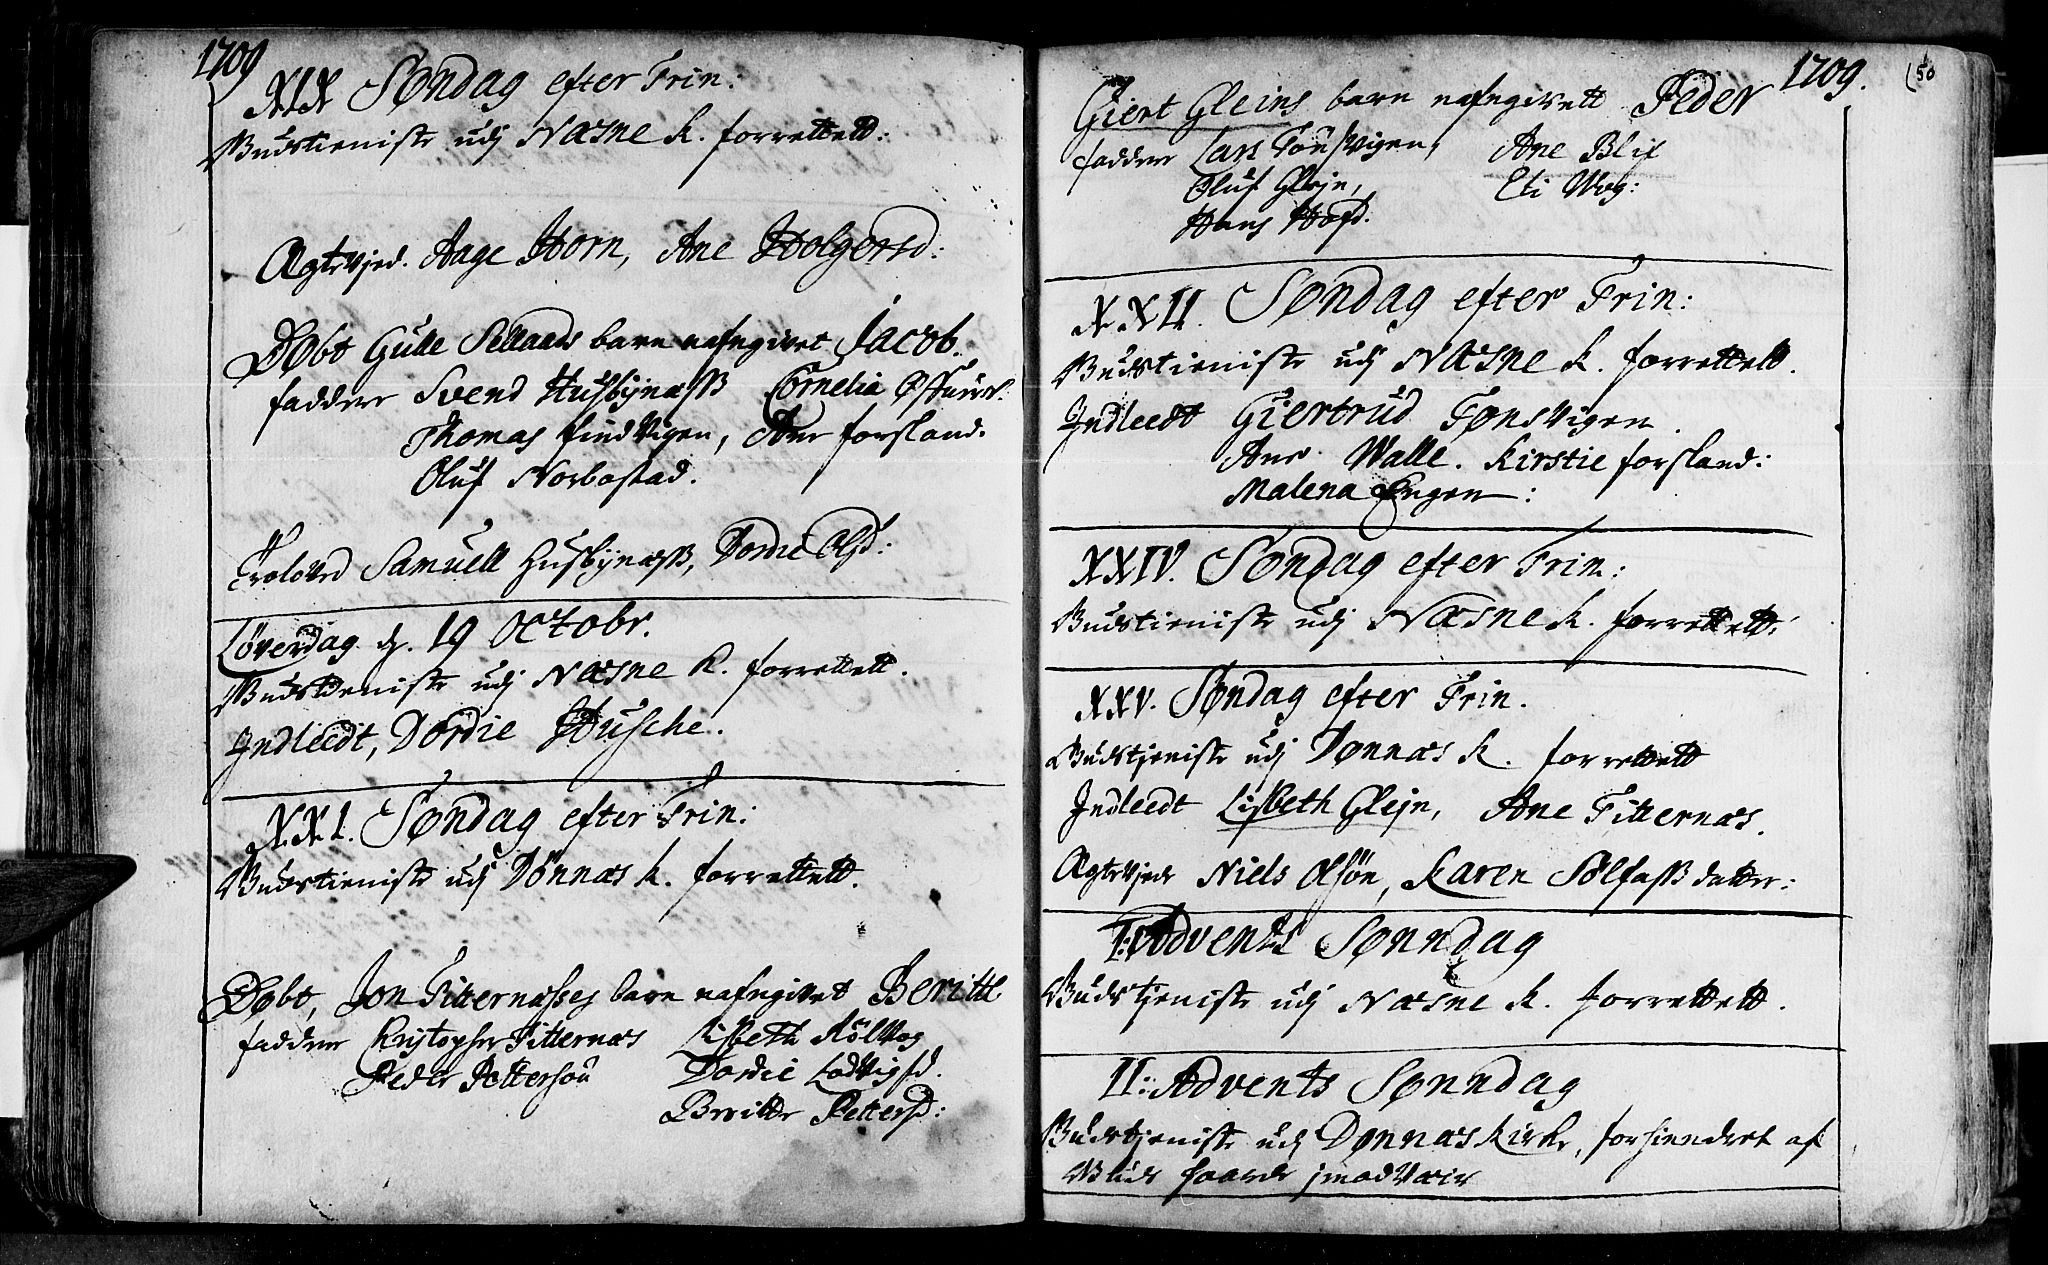 1709
XIX Søndag efter Trin:
Gudstieniste udj Næsne K. forrettett:
Ægtevjed. Aage Horn, Ane Holgersd:
Døbt Gulle barn nafngivet Jacob.
faddere Svend Husbynæss Cornelia
Thomas findvigen, Ane forsland.
Oluf Norbostad.
Troloved Samuell Husbynæss, Dordie Olsd:
Løverdag d. 19 Octobr.
Gudstieniste udj Næsne K. forrettett.
Indleedt, Dordie Husche.
XXI. Søndag efter Trin:
Gudstieniste udj Dönnæs K. forrettett.
Døbt, Jon Titternesses barn nafngivet Beritte
faddere Christopher Titternæs Lisbeth Rölvog
Peder Pettersön Dordie Lodvigsd.
Beritte Pettersd:
1709.
(50
Giert Gleins barn nafngivett Peder
faddere Lars Tönsvigen, Ane Blix
Oluf Glejn, Eli Wog:
Hans Hofd.
XXII. Søndag efter Trin:
Gudstieniste udj Næsne K. forrettett.
Indleedt Giertrud Tønsvigen.
Ane Walle. Kirstie forsland:
Malena Engen:
XXIV. Søndag efter Trin:
Gudstieniste udj Næsne K. forrettett.
XXV. Søndag efter Trin.
Gudstjeniste udj Dønnæs K. forrettett
Indleedt Lisbeth Glejn, Ane Titternæs.
Ægtevjede Niels Olsön, Karen Sølfastdatter:
I: Advents Sønndag
Gudstjeniste udj Næsne K. forrettett.
II: Advents Sønndag
Gudstjeniste udj Dønnæs Kirke, forhiendret af
Guds haarde